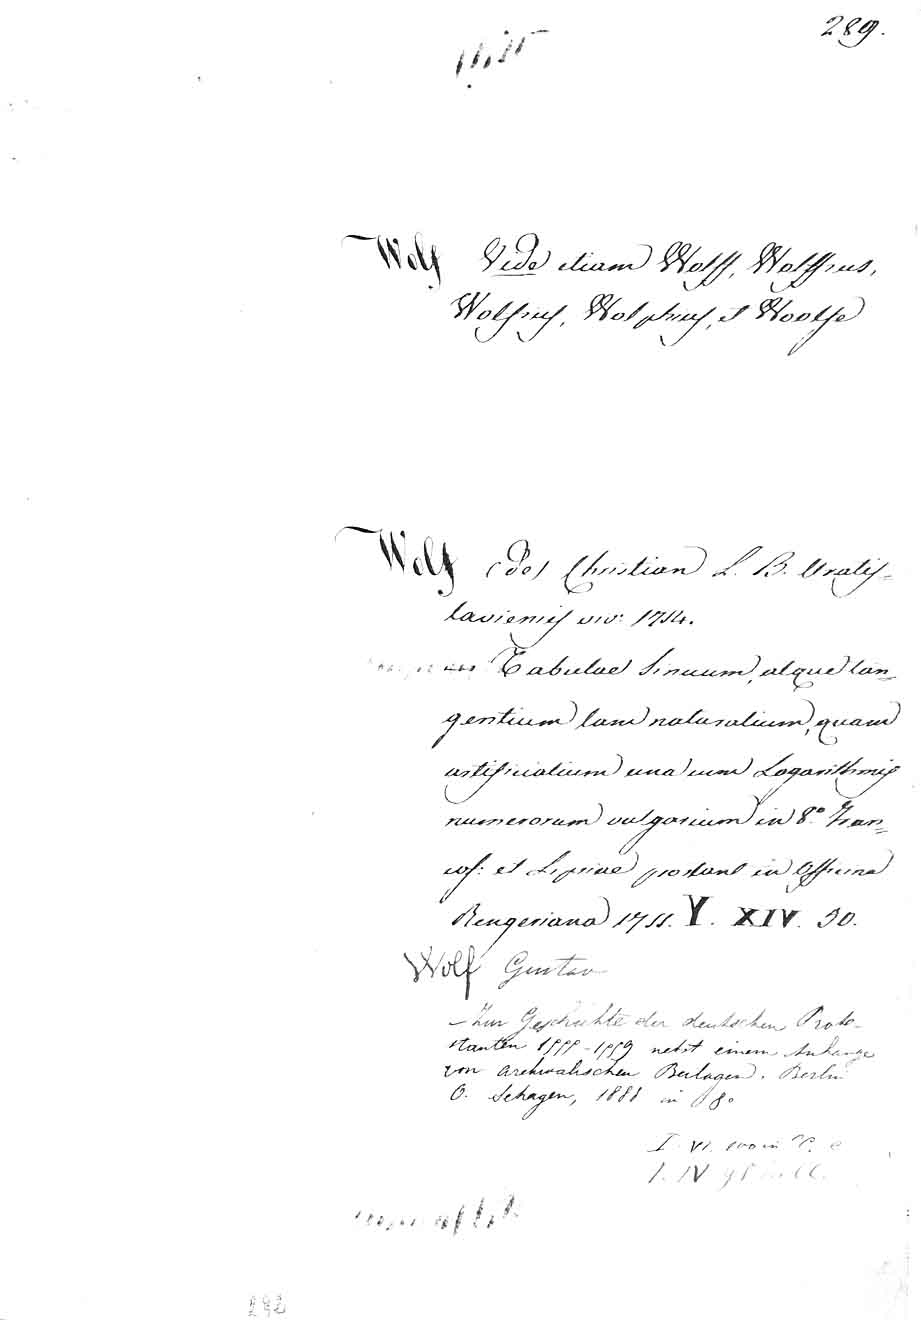 289.
Wolf Vide etiam Wolff, Wolffius,
Wolfius, Wolphius, et Woolfe
Wolf (de) Christian L. B. Uratis=
laviensis viv: 1754.
Tabulae Sinuum, atque tan=
gentium tam naturalium, quam
artificialium una cum Logarithmis
numerorum vulgarium in 8.° Fran=
cof: et Lipsiae prostant in Officina
Rengeriana 1755. V. XIV. 50.
Wolf Gustav
— Zur Geschichte der deutschen Prote-
stanten 1555-1559 nebst einem Anhange
von archivalischen Beilagen. Berlin
O. Sehagen, 1888 in 8°
I. VI.
I. IV
292